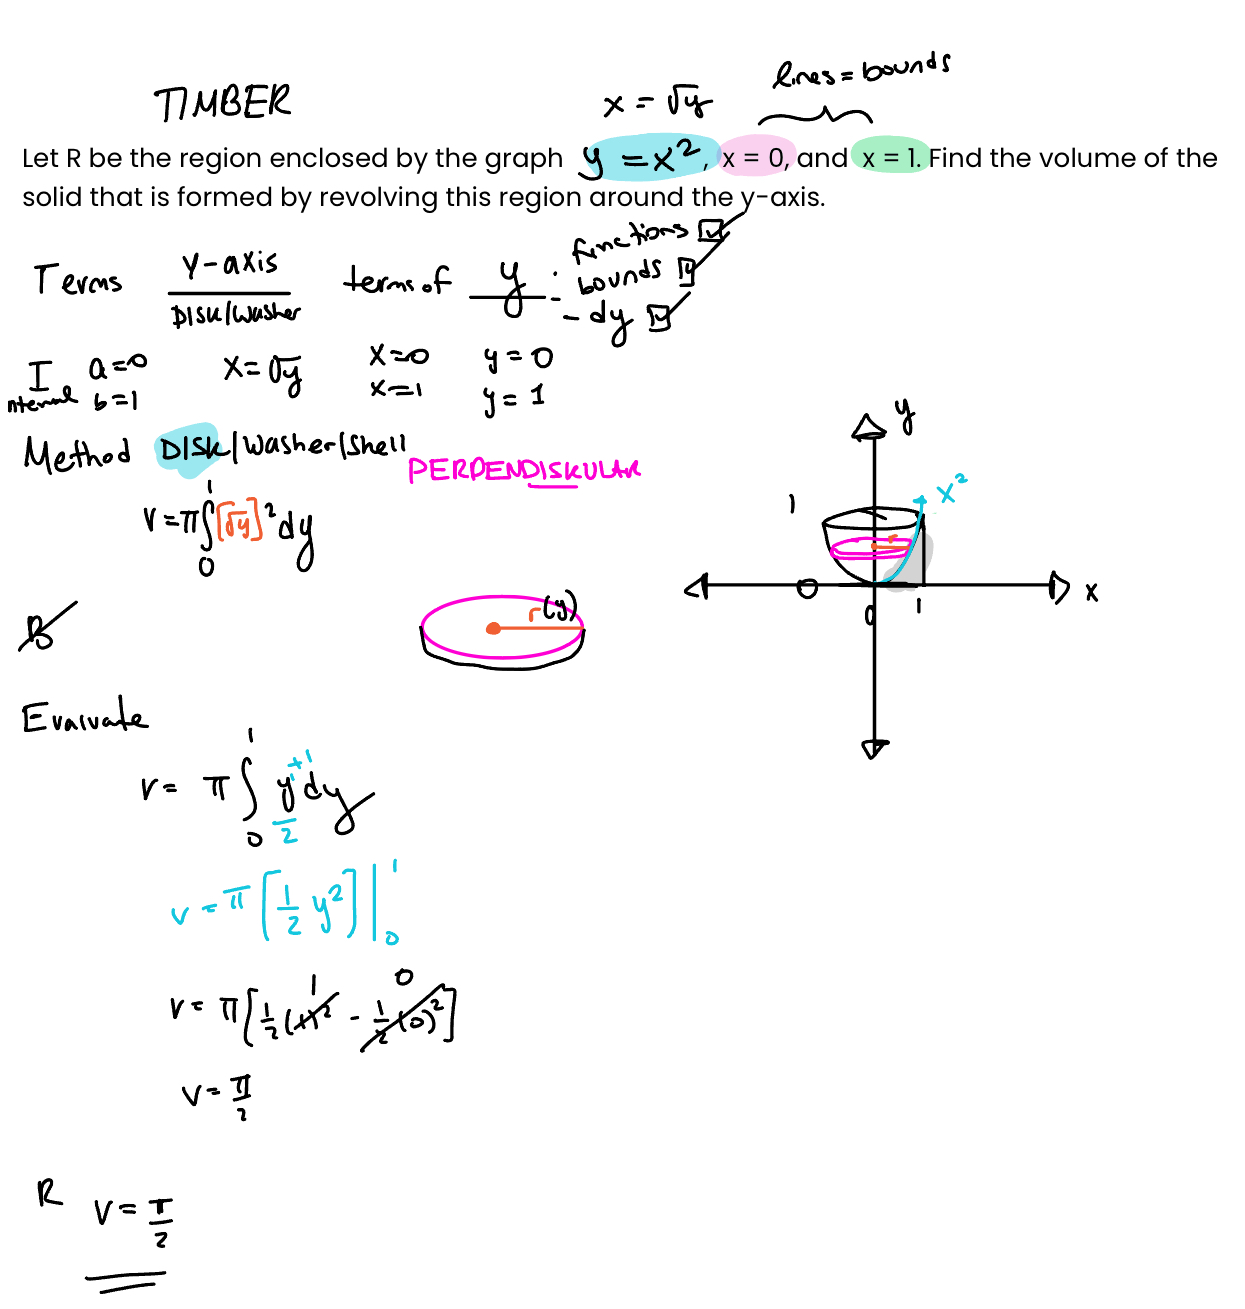 lines = bounds
TIMBER x = √y
Let R be the region enclosed by the graph y = x², x = 0, and x = 1. Find the volume of the
solid that is formed by revolving this region around the y-axis.
Terms y-axis terms of y - functions
Disk/Washer - bounds
- dy
Interval a=0 x=√y x=0 y=0
b=1 x=1 y=1
Method Disk/Washer/Shell
PERPENDISKULAR
V=π∫₀¹[√y]²dy
y
x²
1
r
0 x
0 1
B
r(y)
Evaluate
V= π∫₀¹ y¹⁺¹/2 dy
V = π[1/2 y²]|₀¹
V= π[1/2(1)² - 1/2(0)²]
1 0
V=π/2
R V=π/2